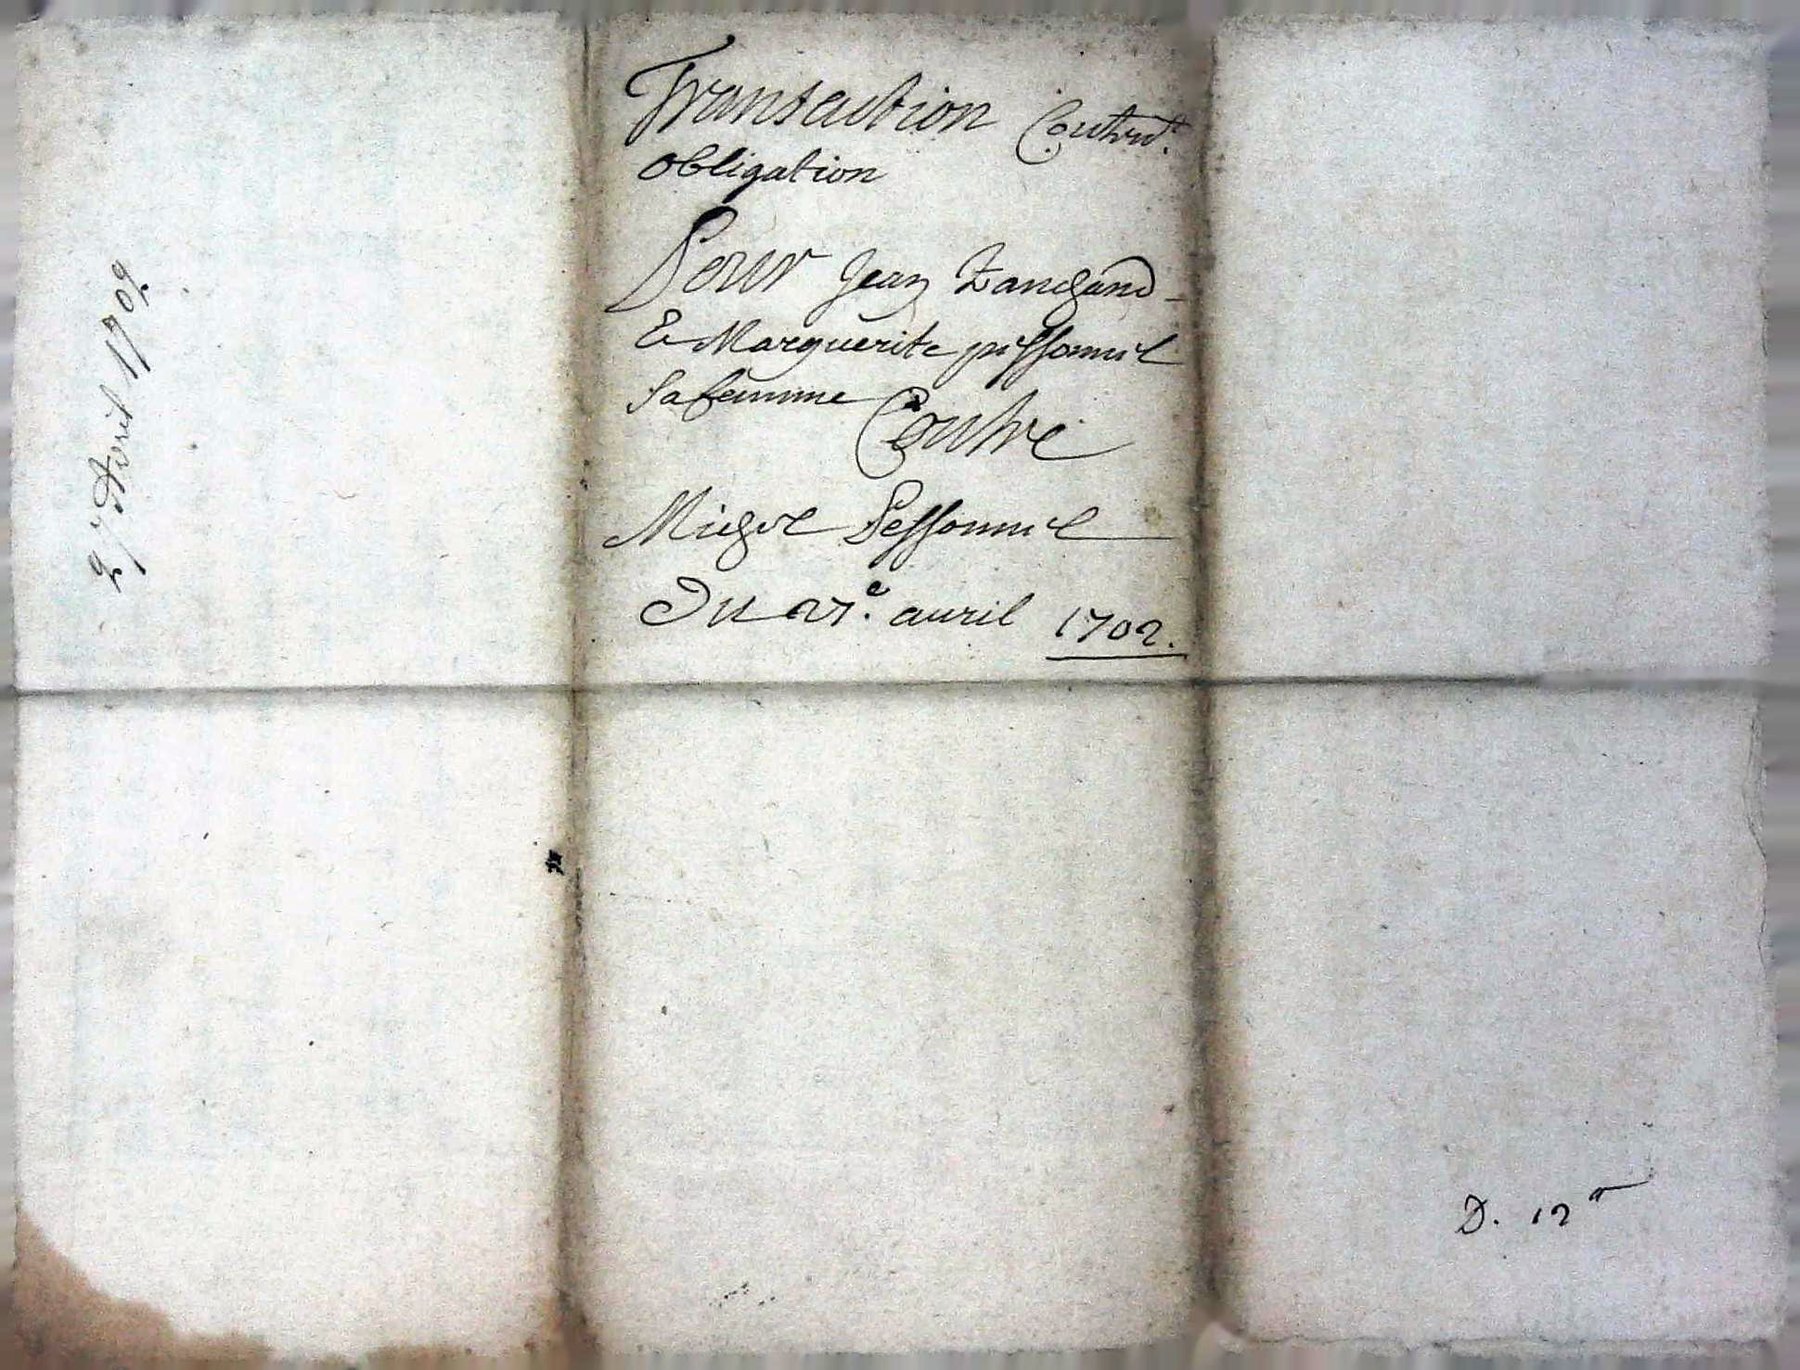 27 Avril 1702
Transaction Contrat.
obligation
Pour Jean
Et Marguerite pessonnel
Sa femme Contre
Michel Pessonnel
Du 27.e auril 1702.
D. 12